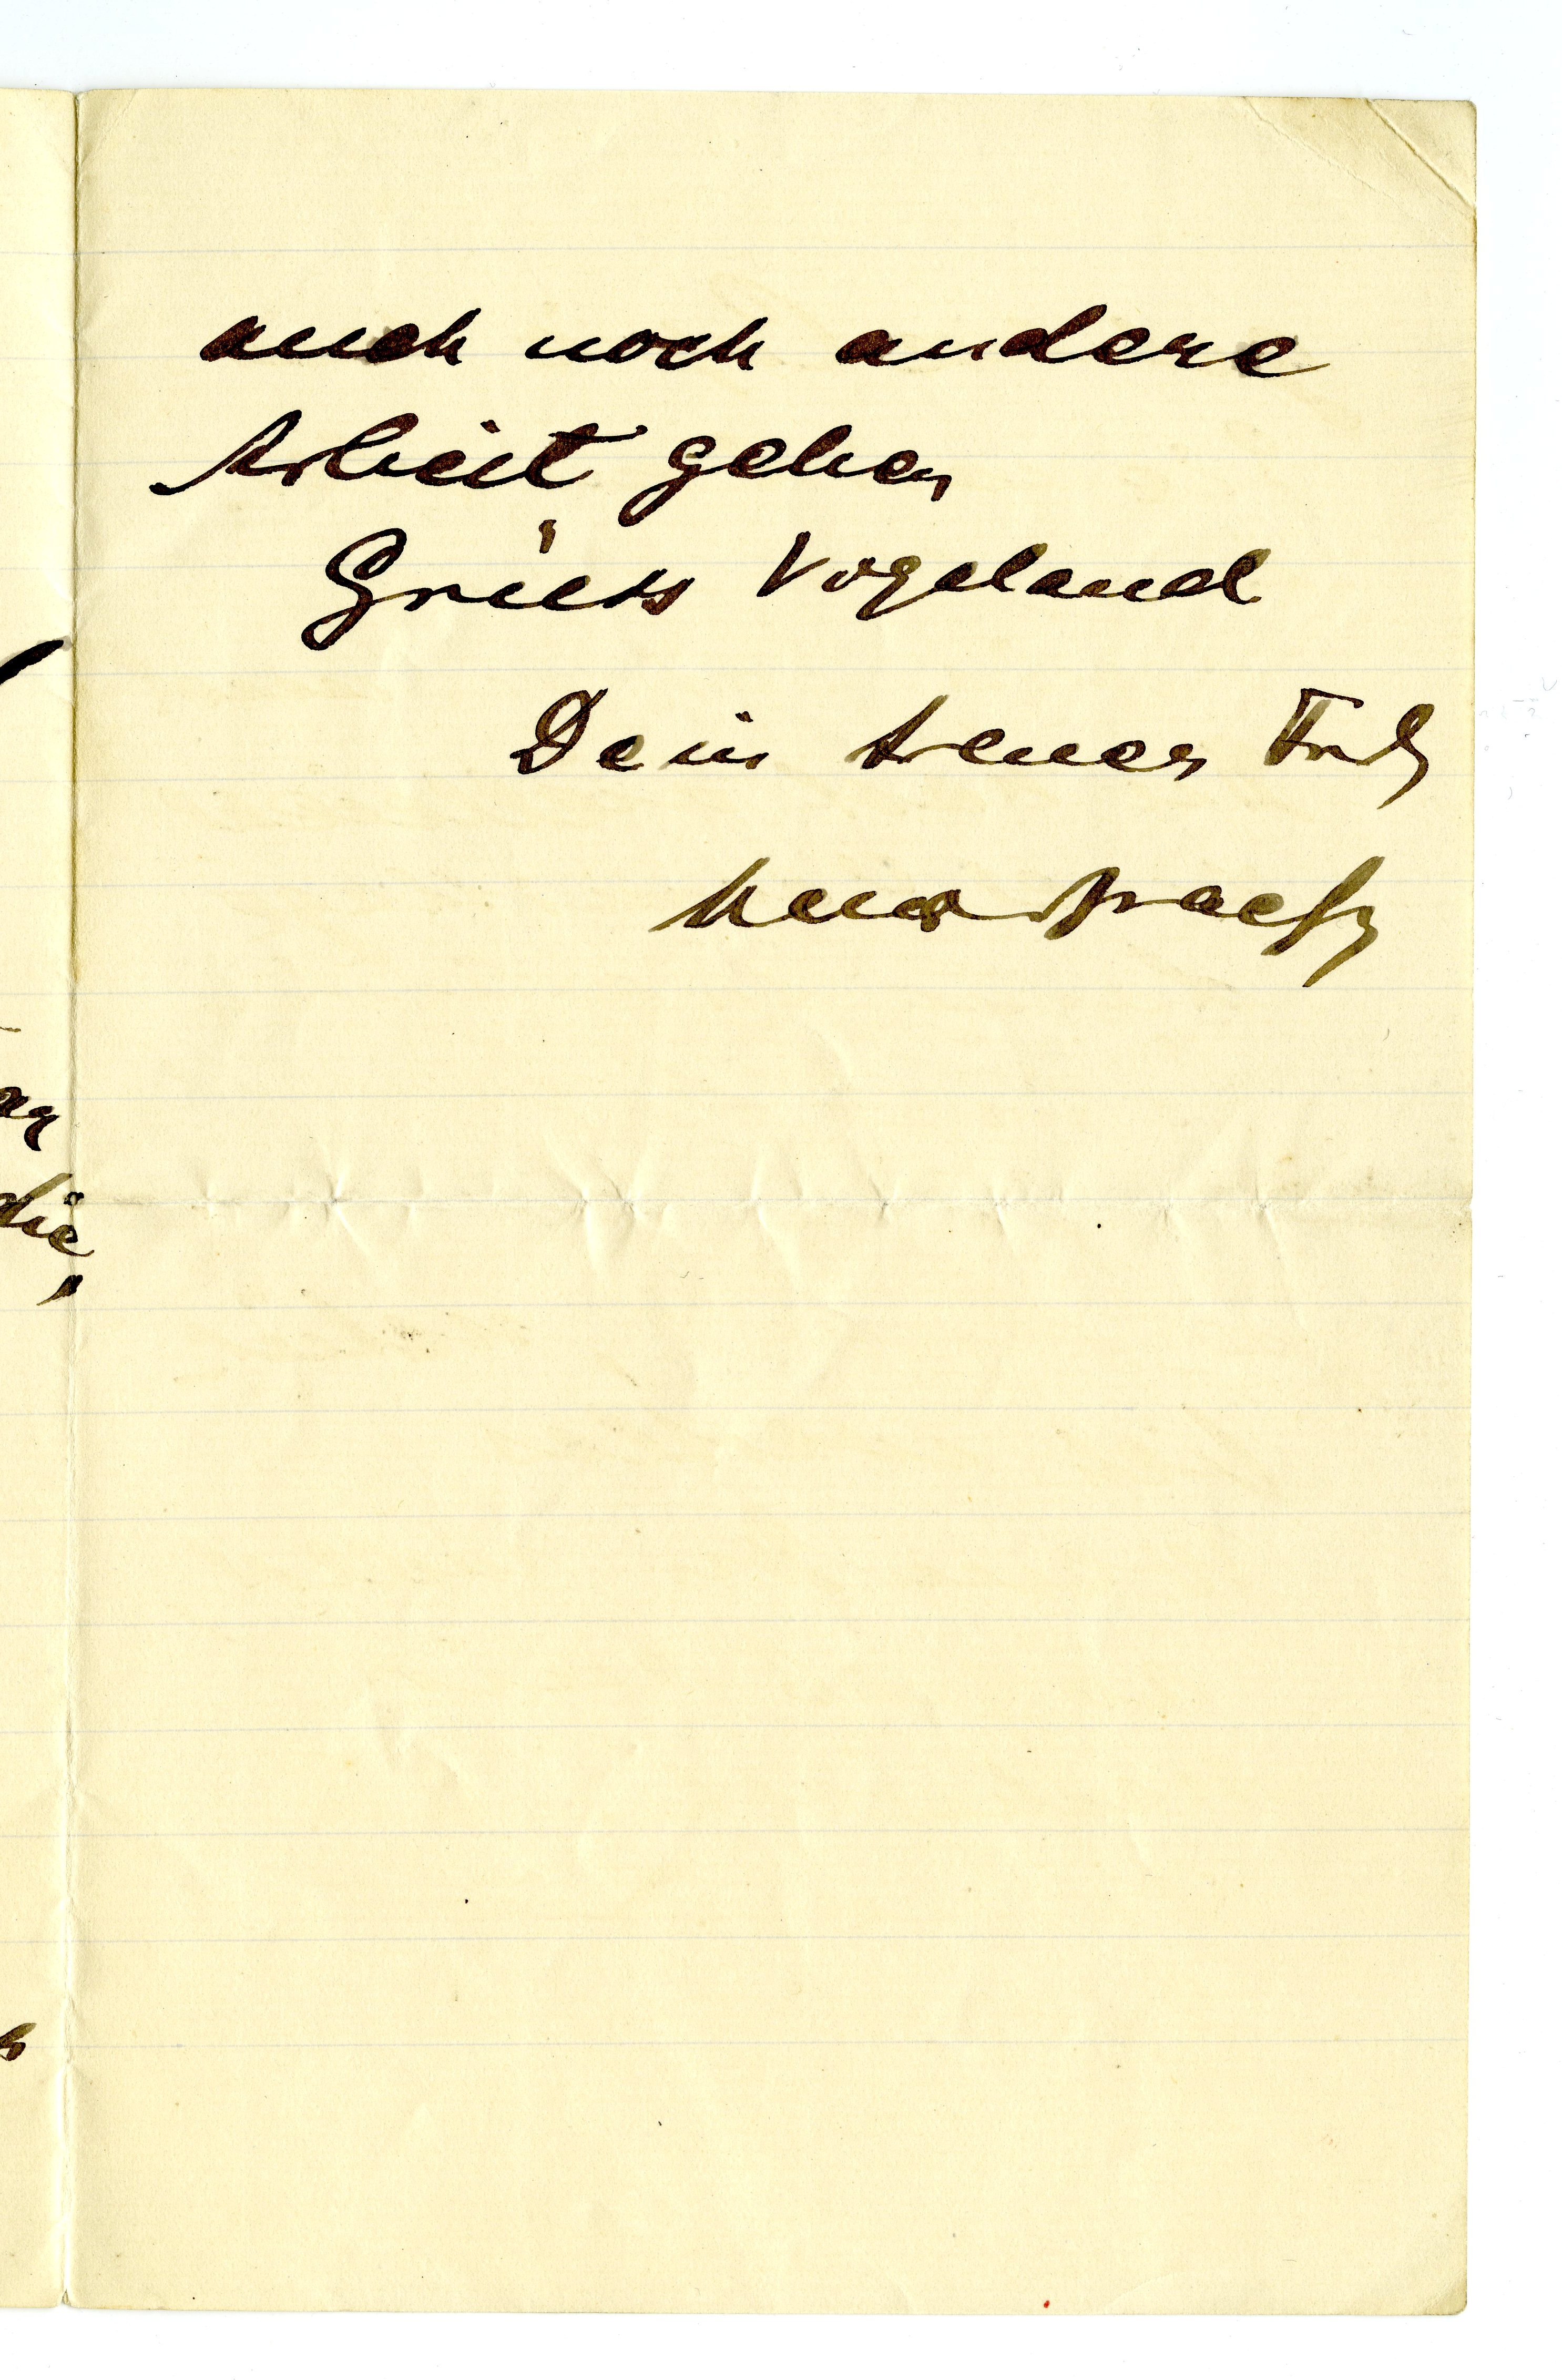 auch noch andere
Arbeit geben
Grüss Vogeland
Dein treuer
die,